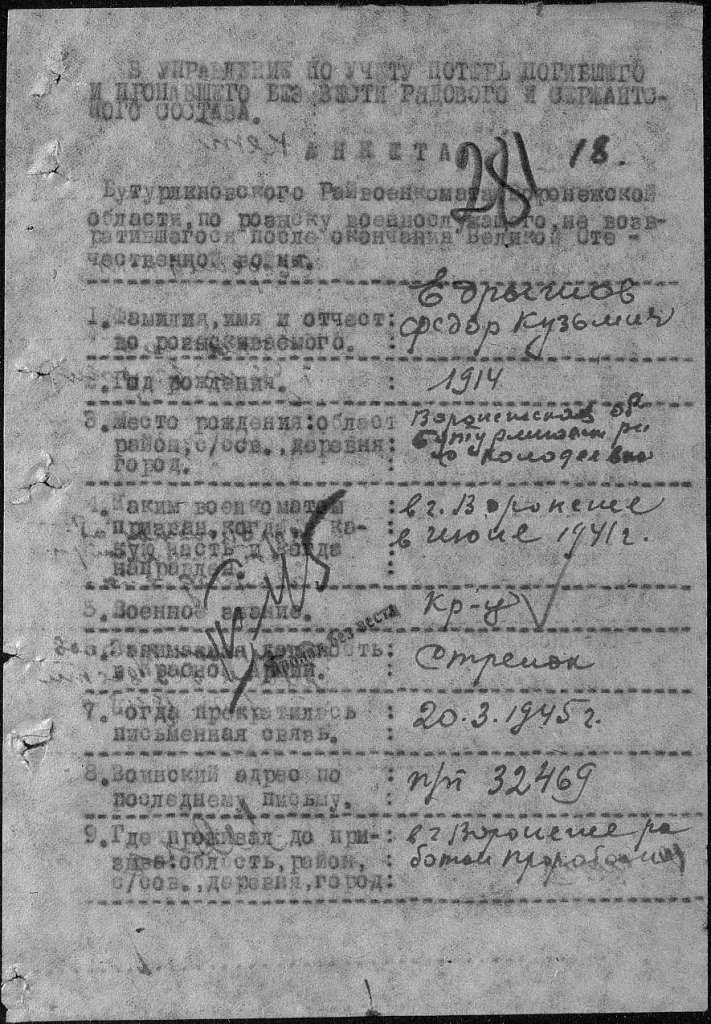 В УПРАВЛЕНИЕ ПО УЧЕТУ ПОТЕРЬ ПОГИБШЕГО
И ПРОПАВШЕГО БЕЗ ВЕСТИ РЯДОВОГО И СЕРЖАНТС-
КОГО СОСТАВА.
А Н К Е Т А
281 18.
Бутурлиновского Райвоенкомата Воронежской
области, по розыску военнослужащего, не возв-
ратившегося после окончания Великой Оте -
чественной войны.
Едрышов
1. Фамилия, имя и отчест: Федор Кузьмич
во розыскиваемого. :
2. Год рождения. : 1914
3. Место рождения: област Воронежская об
район, с/сов., деревня:
город. с Колодеевка
4. Каким военкоматом : в г. Воронеже
призван, когда, в ка- : в июне 1941 г.
кую часть и когда :
направлен. :
5. Военное звание. : Кр-ц
пропал без вести
6. Занимаемая должность: Стрелок
в Красной Армии. :
7. Когда прекратилась : 20.3.1945 г.
письменная связь. :
8. Воинский адрес по : п/п 32469
последнему письму. :
9. Где проживал до при- : в г Воронеже ра
зыва: область, район, : ботал
с/сов., деревня, город: